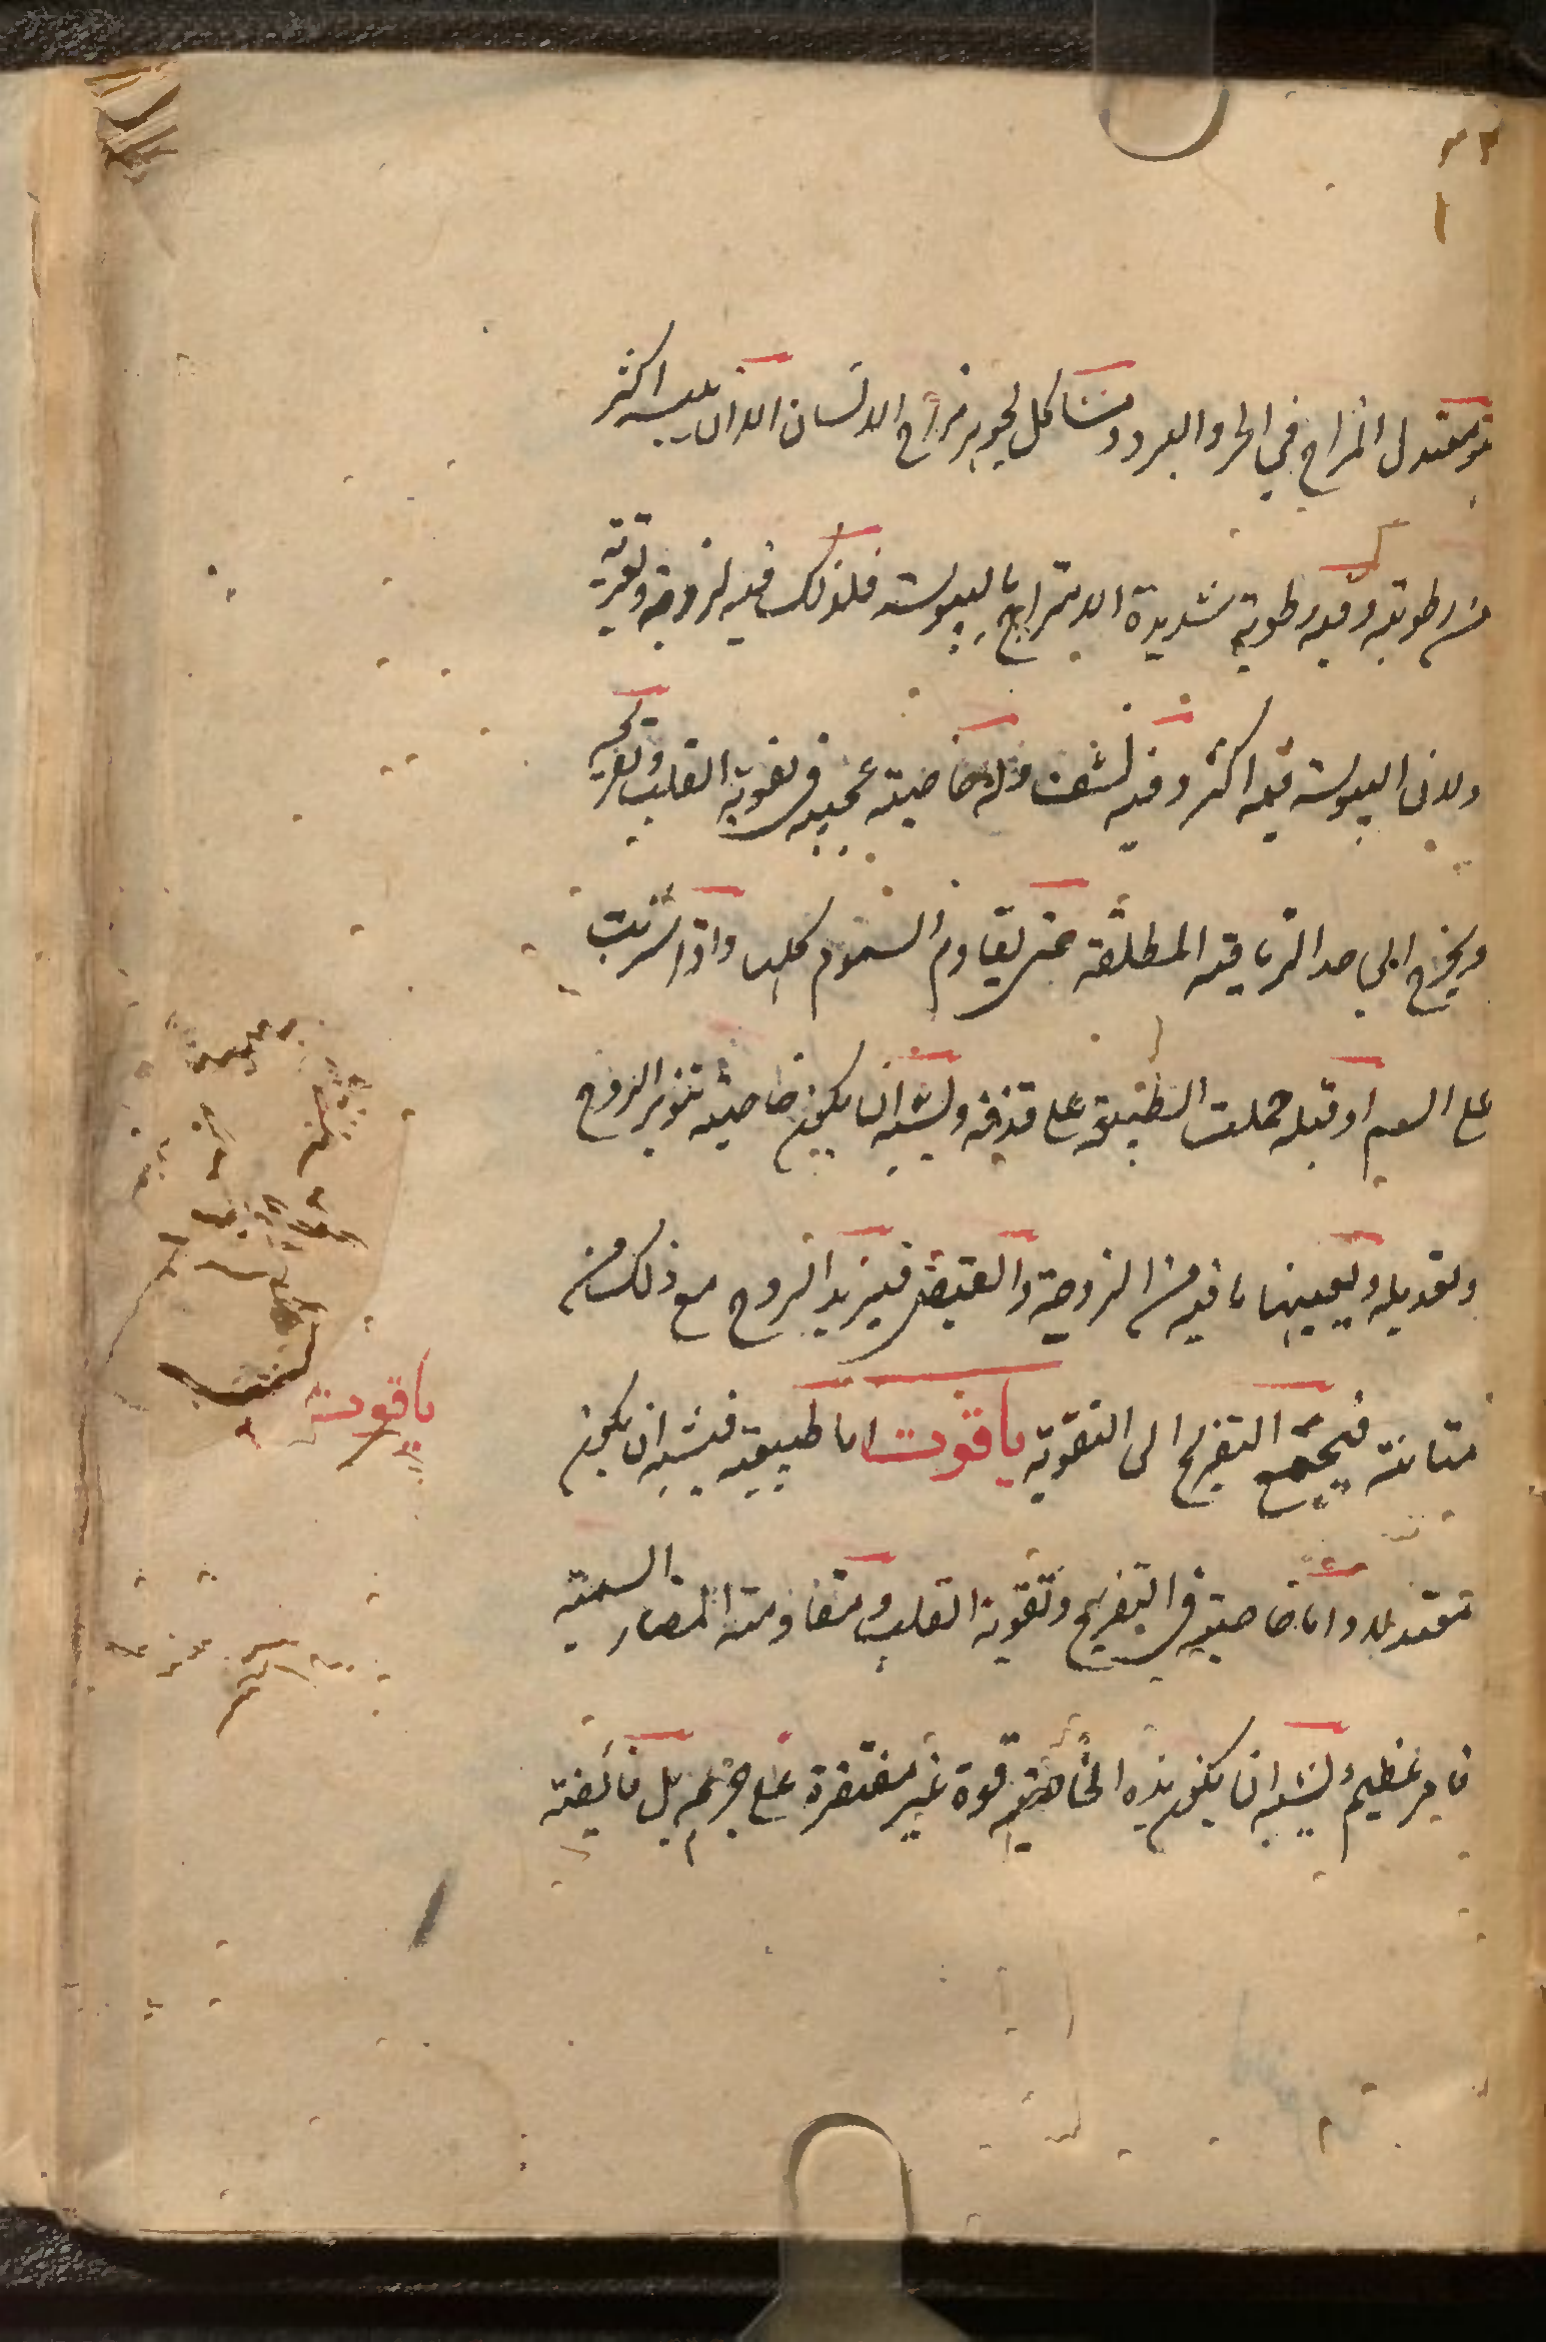 هو معتدل المزاج في الحر والبرد ومشاكل لجوهر مزاج الانسان الا ان يبسه اكثر
من رطوبته وفيه رطوبة شديدة الامتزاج باليبوسة فلذلك فيه لزوجة وتغرية
ولان اليبوسة فيه اكثر وفيه نشف وله خاصية عجيبة في تقوية القلب وتفريحه
ويخرج الى حد الترياقية المطلقة حتى يقاوم السموم كلها واذا شربت
على السم او قبله حملت الطبيعة على قذفه ويشبه ان يكون خاصيته تنوير الروح
وتعديله ويعينها ما فيه من اللزوجة والقبض فيزيد الروح مع ذلك من
متانته فيجمع التفريح الى التقوية ياقوت اما طبيعته فيشبه ان يكون
معتدلا واما خاصيته في التفريح وتقوية القلب ومقاومته المضار السمية
فامر عظيم ويشبه ان يكون هذه الخاصية قوة غير مقتصرة على جرمه بل فائضة
ياقوت